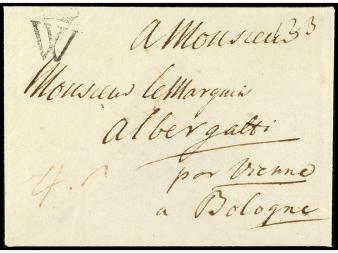 W
a Monsieur 33
Monsieur le Marquis
albergatti
par Vienne
a Bologne